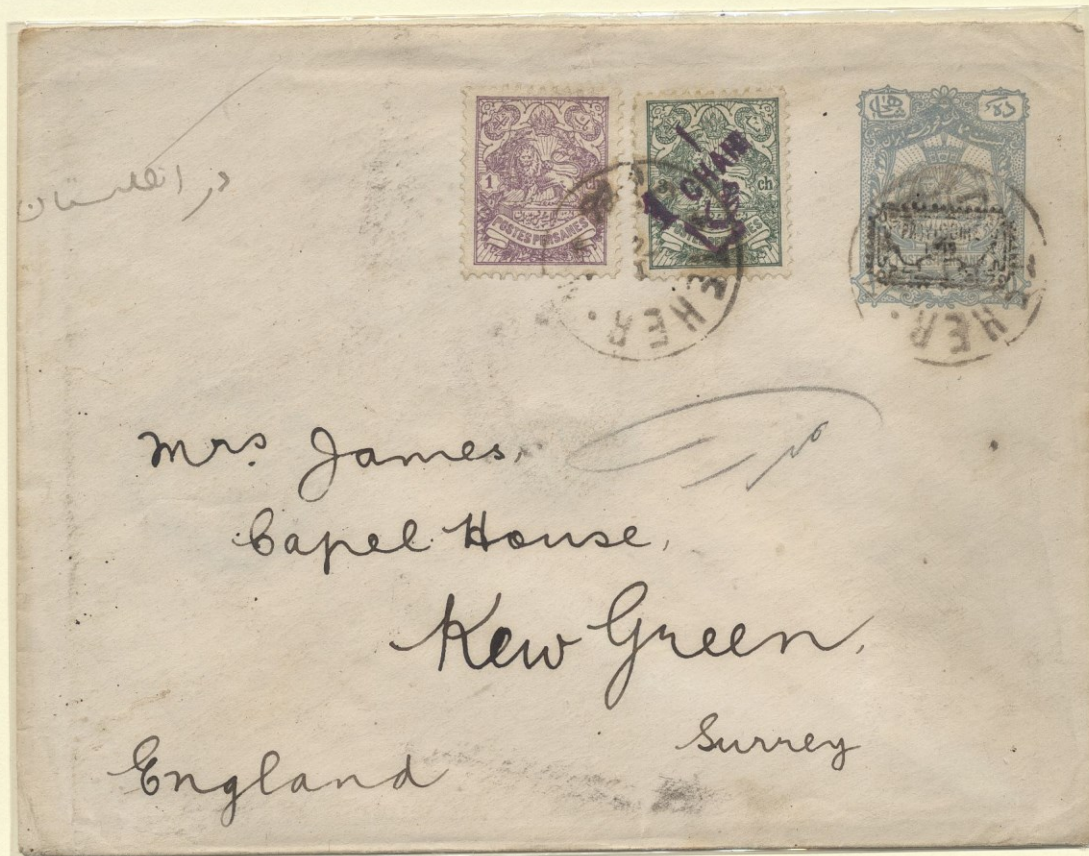 در انگلستان
1
POSTES PERSANES
1 CHAHI
ch
POSTES PERSANES
HER.
PROVISOIRE
HER.
Mrs. James,
Capel House,
Kew Green,
Surrey
England